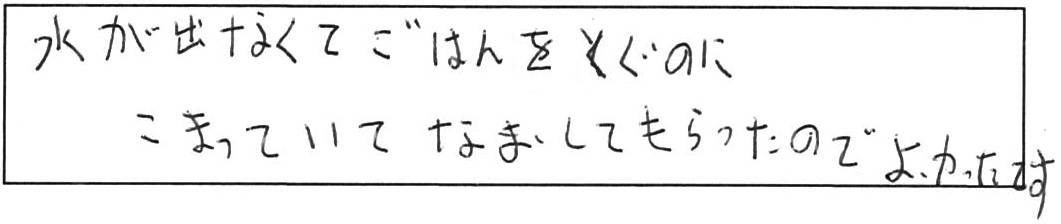 水が出なくてごはんをとぐのに
こまっていてなましてもらったのでよかったです